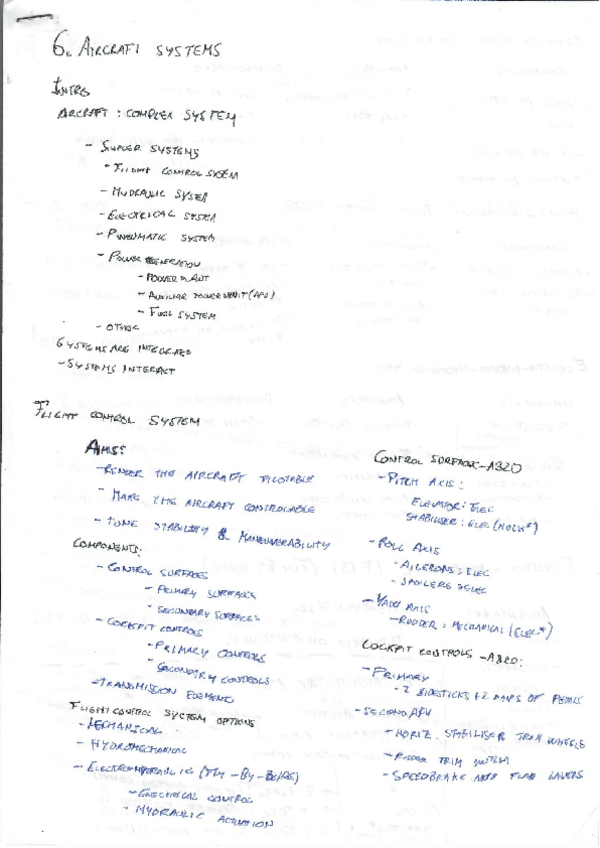 6. AIRCRAFT SYSTEMS
INTRO
AIRCRAFT : COMPLEX SYSTEM
- SIMPLER SYSTEMS
- FLIGHT CONTROL SYSTEM
- HYDRAULIC SYSTEM
- ELECTRICAL SYSTEM
- PNEUMATIC SYSTEM
- POWER GENERATION
- POWER PLANT
- AUXILIAR POWER UNIT (APU)
- FUEL SYSTEM
- OTHER
SYSTEMS ARE INTEGRATED
- SYSTEMS INTERACT
FLIGHT CONTROL SYSTEM
AIMS:
- RENDER THE AIRCRAFT PILOTABLE
- MAKE THE AIRCRAFT CONTROLABLE
- TUNE STABILITY & MANEUVERABILITY
COMPONENTS:
- CONTROL SURFACES
- PRIMARY SURFACES
- SECONDARY SURFACES
- COCKPIT CONTROLS
- PRIMARY CONTROLS
- SECONDARY CONTROLS
- TRANSMISSION ELEMENTS
FLIGHT CONTROL SYSTEM OPTIONS
- MECHANICAL
- HYDROMECHANICAL
- ELECTROHYDRAULIC (FLY-BY-WIRE)
- ELECTRICAL CONTROL
- HYDRAULIC ACTUATION
CONTROL SURFACES - A320
- PITCH AXIS :
ELEVATOR : ELEC
STABILISER : ELEC (MECH*)
- ROLL AXIS
- AILERONS : ELEC
- SPOILERS : ELEC
- YAW AXIS
- RUDDER : MECHANICAL (ELEC*)
COCKPIT CONTROLS - A320:
- PRIMARY
- 2 SIDESTICKS + 2 PAIRS OF PEDALS
- SECONDARY
- HORIZ. STABILISER TRIM WHEELS
- RUDDER TRIM SWITCH
- SPEEDBRAKE AND FLAP LEVERS